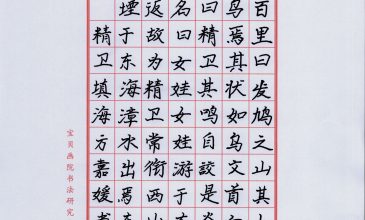 百里曰发鸠之山其
鸟焉其状如乌文首
曰精卫其鸣自詨是
名曰女娃女娃游于
返故为精卫常衔西
堙于东海漳水出焉
精卫填海方嘉媛
宝贝画院书法研究